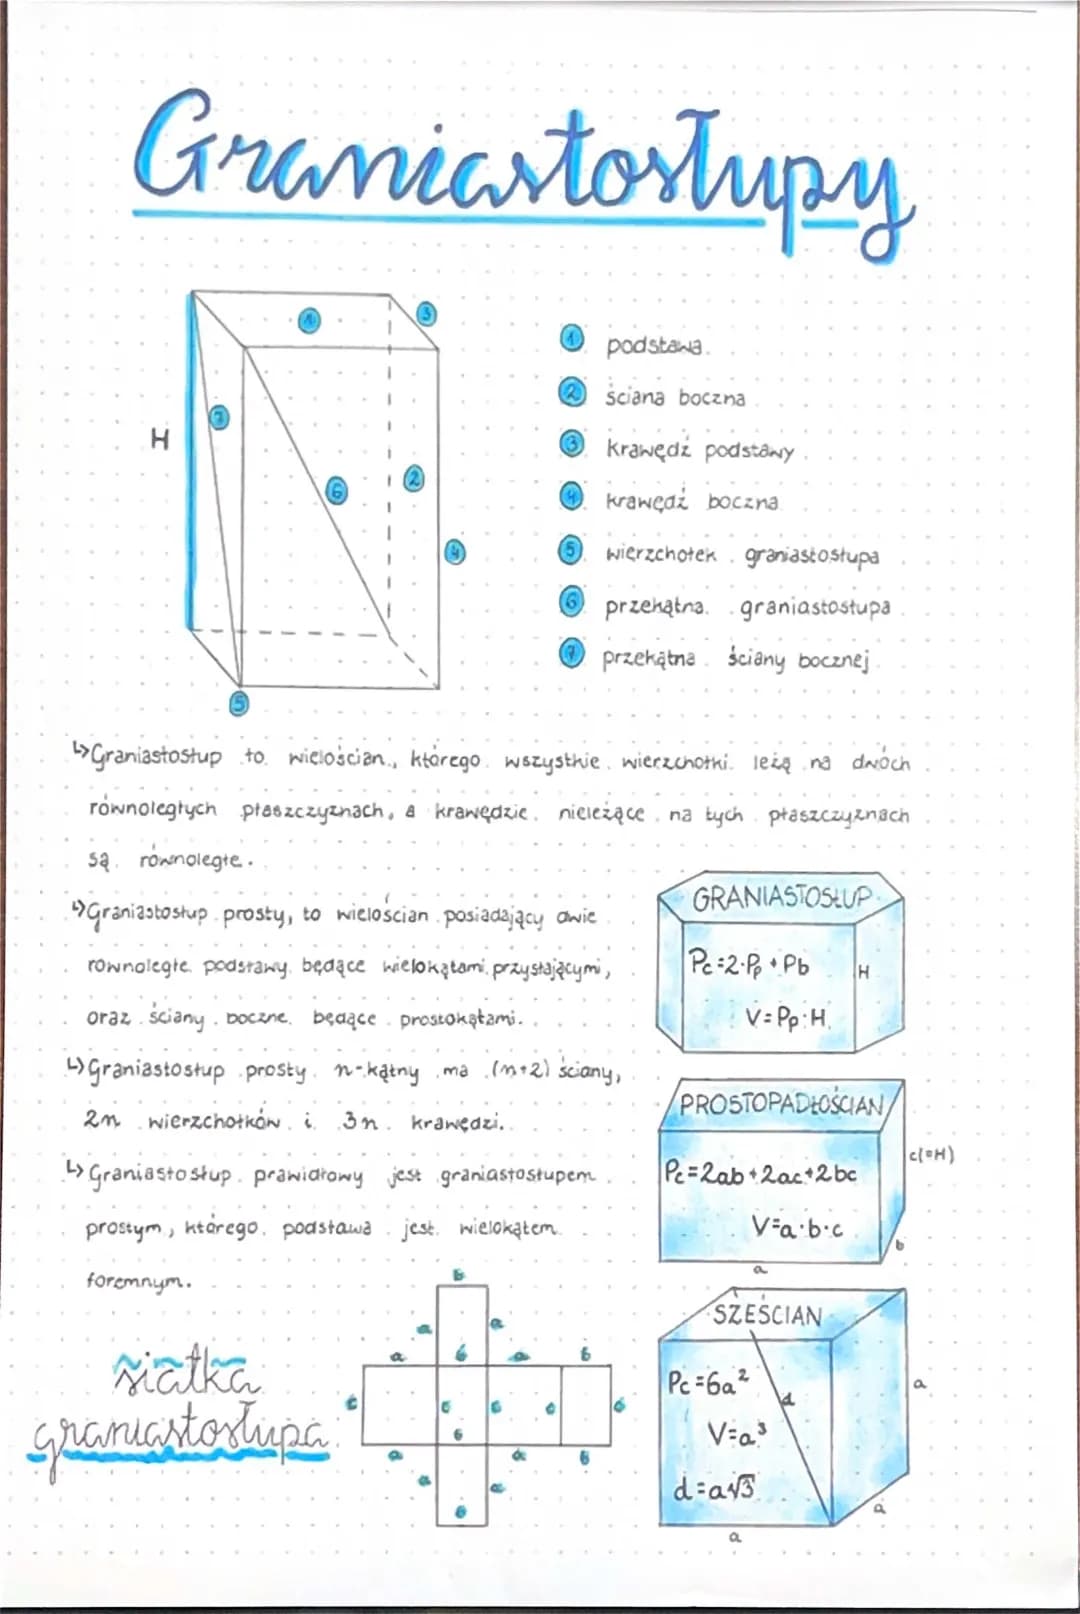 Graniastosłupy
1
3
7
H
6
2
4
5
1 podstawa
2 ściana boczna
3 krawędź podstawy
4 krawędź boczna
5 wierzchołek graniastosłupa
6 przekątna graniastosłupa
7 przekątna ściany bocznej
↳Graniastosłup to wielościan, którego wszystkie wierzchołki leżą na dwóch
równoległych płaszczyznach, a krawędzie nieleżące na tych płaszczyznach
są równoległe.
↳Graniastosłup prosty, to wielościan posiadający dwie
równoległe podstawy będące wielokątami przystającymi,
oraz ściany boczne będące prostokątami.
↳Graniastosłup prosty n-kątny ma (n+2) ściany,
2n wierzchołków i 3n krawędzi.
↳Graniastosłup prawidłowy jest graniastosłupem
prostym, którego podstawa jest wielokątem
foremnym.
GRANIASTOSŁUP
Pc=2·Pp+Pb
H
V=Pp·H
PROSTOPADŁOŚCIAN
c(=H)
Pc=2ab+2ac+2bc
V=a·b·c
b
a
SZEŚCIAN
Pc=6a²
d
a
V=a³
d=a√3
a
a
siatka
graniastosłupa
b
a a
a b a b
c c c c c
b
a a b
a a
b